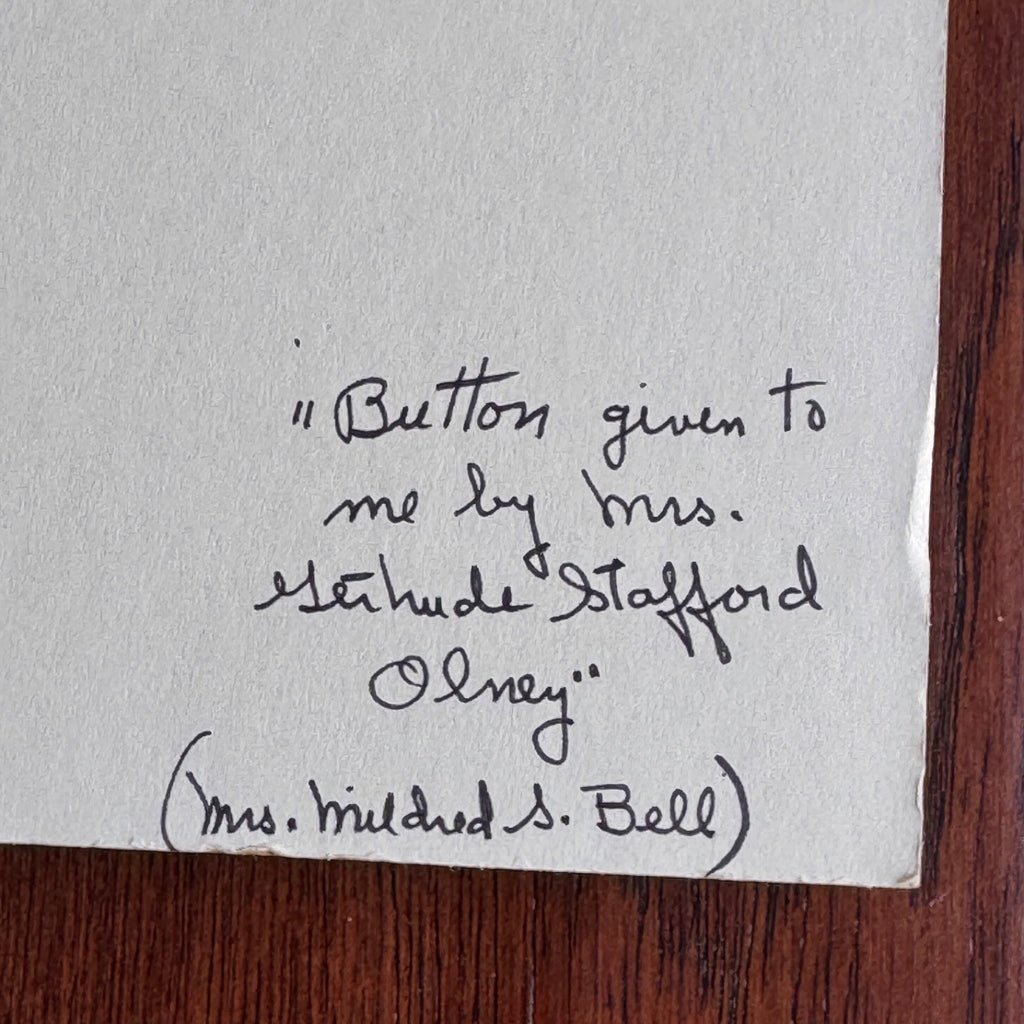 "Button given to
me by Mrs.
Gertrude Stafford
Olney"
(Mrs. Mildred S. Bell)